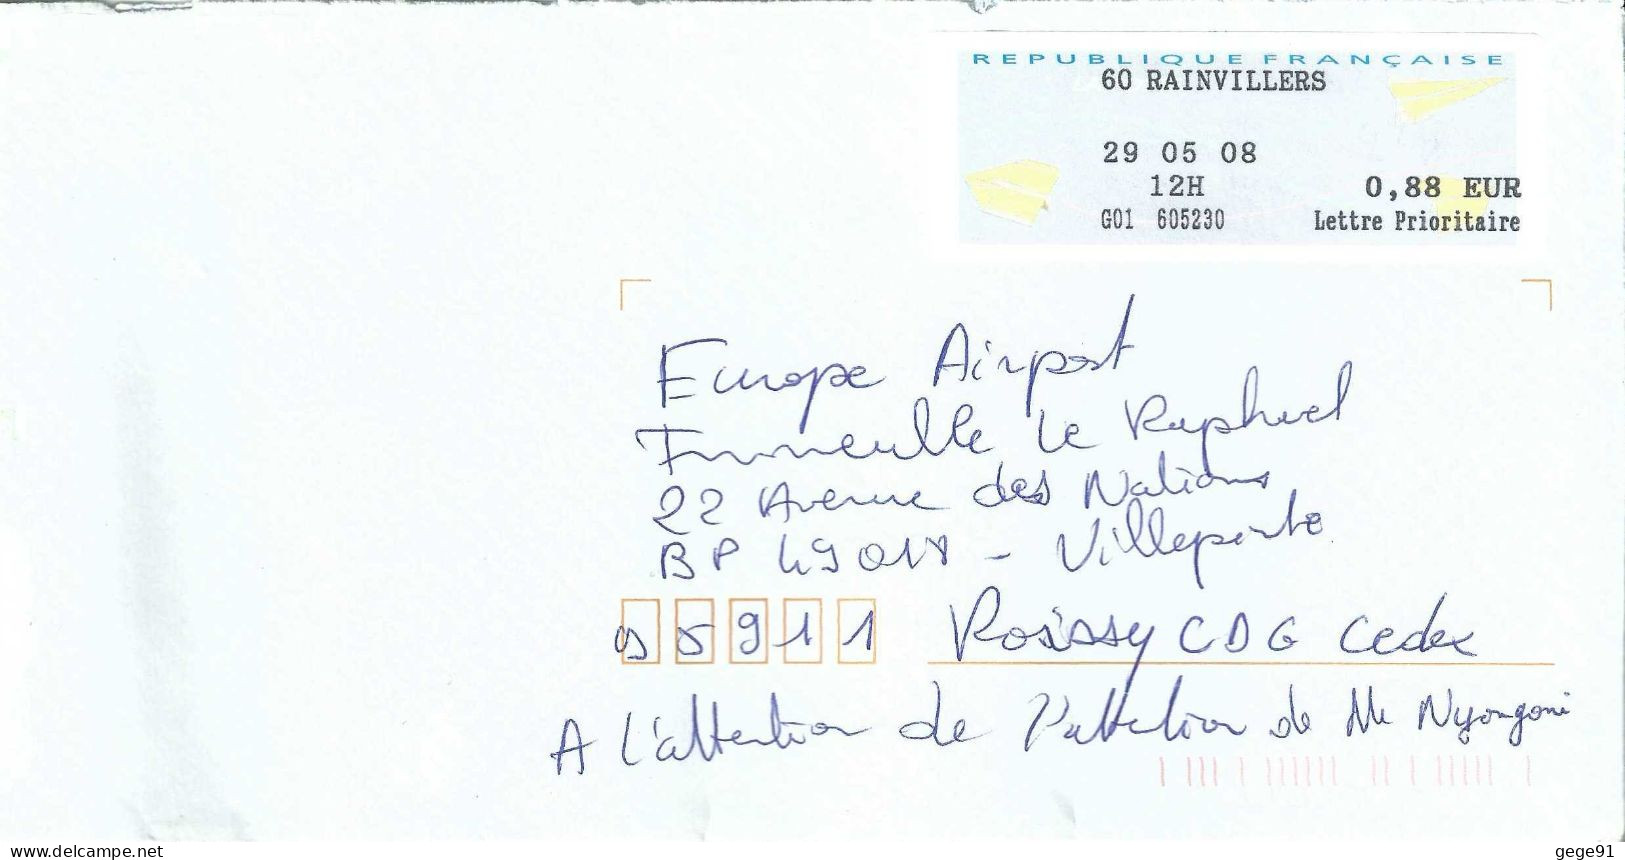 REPUBLIQUE FRANÇAISE
60 RAINVILLERS
29 05 08
12H
0,88 EUR
G01 605230
Lettre Prioritaire
Europe Airport
Immeuble Le Raphael
22 Avenue des Nations
BP 49018 - Villepinte
95911 Roissy CDG Cedex
A l'attention de l'attention de Me Nyongoni
www.delcampe.net
gege91